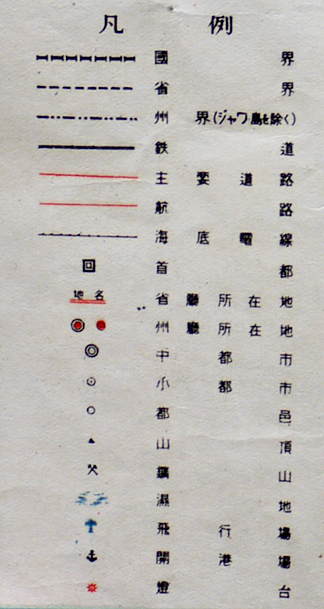 凡例
國界
省界
州界(ジャワ島を除く)
鉄道
主要道路
航路
海底電線
首都
地名 省廳所在地
州廳所在地
中都市
小都市
都邑
山頂
鑛山
濕地
飛行場
開港場
燈台